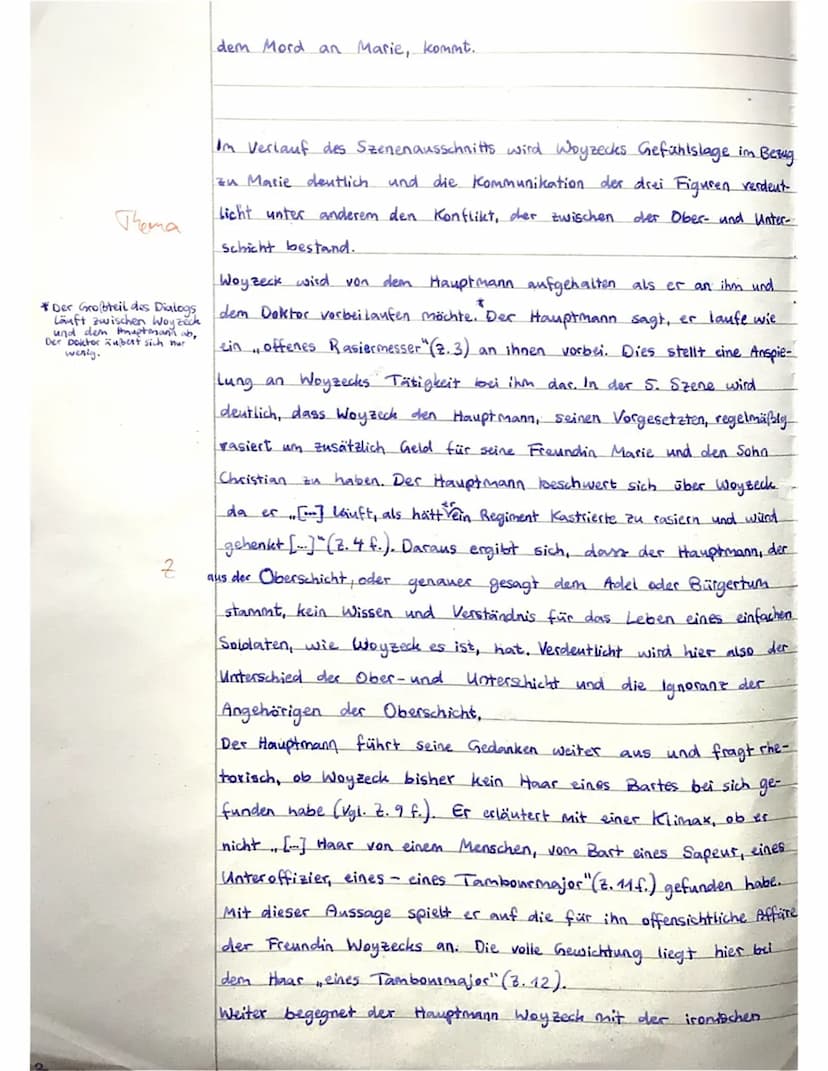 dem Mord an Marie, kommt.
Im Verlauf des Szenenausschnitts wird Woyzecks Gefühlslage im Bezug
zu Marie deutlich und die Kommunikation der drei Figuren verdeut-
Thema
licht unter anderem den Konflikt, der zwischen der Ober- und Unter-
schicht bestand.
Woyzeck wird von dem Hauptmann aufgehalten als er an ihm und
* Der Großteil des Dialogs
läuft zwischen Woyzeck
und dem Hauptmann ab,
Der Doktor äußert sich nur
wenig.
dem Doktor vorbeilaufen möchte.* Der Hauptmann sagt, er laufe wie
ein „offenes Rasiermesser“ (Z. 3) an ihnen vorbei. Dies stellt eine Anspie-
lung an Woyzecks Tätigkeit bei ihm dar. In der 5. Szene wird
deutlich, dass Woyzeck den Hauptmann, seinen Vorgesetzten, regelmäßig
rasiert um zusätzlich Geld für seine Freundin Marie und den Sohn
Christian zu haben. Der Hauptmann beschwert sich über Woyzeck
da er „[...] läuft, als hätt er ein Regiment Kastrierte zu rasiern und würd
gehenkt [...]“ (Z. 4 f.). Daraus ergibt sich, dass der Hauptmann, der
Z
aus der Oberschicht, oder genauer gesagt dem Adel oder Bürgertum
stammt, kein Wissen und Verständnis für das Leben eines einfachen
Soldaten, wie Woyzeck es ist, hat. Verdeutlicht wird hier also der
Unterschied der Ober- und Unterschicht und die Ignoranz der
Angehörigen der Oberschicht.
Der Hauptmann führt seine Gedanken weiter aus und fragt rhe-
torisch, ob Woyzeck bisher kein Haar eines Bartes bei sich ge-
funden habe (Vgl. Z. 9 f.). Er erläutert mit einer Klimax, ob er
nicht „[...] Haar von einem Menschen, vom Bart eines Sapeur, eines
Unteroffizier, eines - eines Tambourmajor“ (Z. 11 f.) gefunden habe.
Mit dieser Aussage spielt er auf die für ihn offensichtliche Affäre
der Freundin Woyzecks an. Die volle Gewichtung liegt hier bei
dem Haar „eines Tambourmajor“ (Z. 12).
Weiter begegnet der Hauptmann Woyzeck mit der ironischen